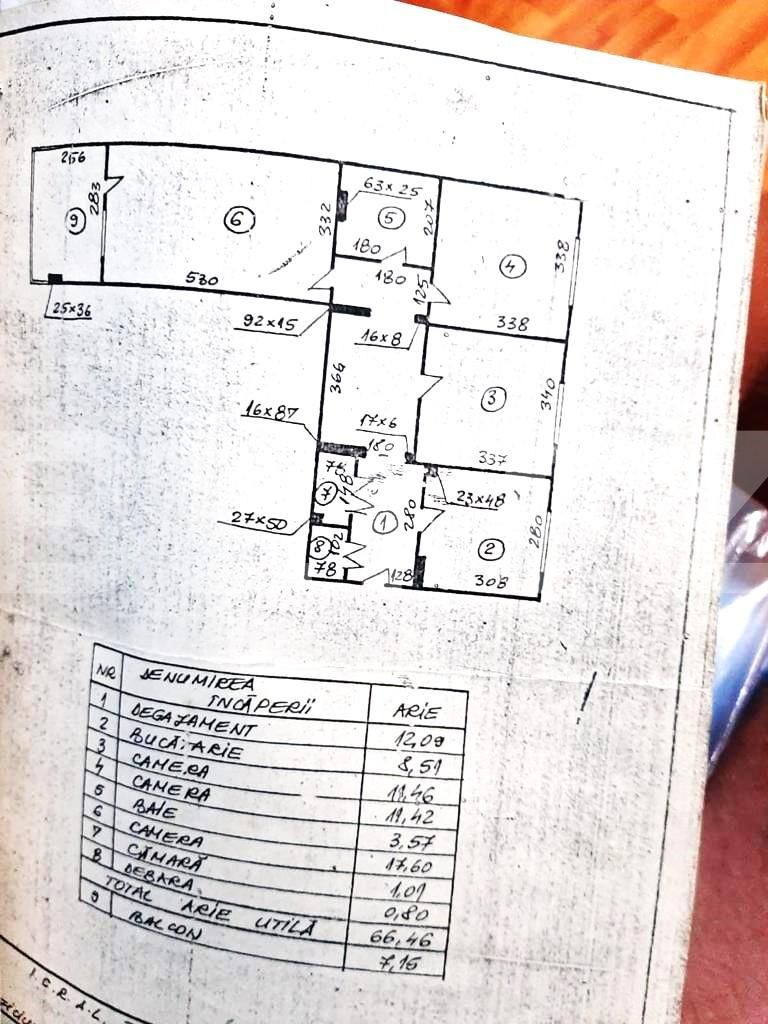 256
283
9
6
332
530
25×36
63×25
5
207
180
180
125
4
338
338
92×15
16×8
366
3
340
337
16×87
17×6
180
74
148
7
23×48
280
1
27×50
2
280
8
102
78
128
308
NR DENUMIREA ÎNCĂPERII ARIE
1 DEGAJAMENT 12,09
2 BUCĂTARIE 8,51
3 CAMERA 11,46
4 CAMERA 11,42
5 BAIE 3,57
6 CAMERA 17,60
7 CĂMARĂ 1,01
8 DEBARA 0,80
TOTAL ARIE UTILĂ 66,46
9 BALCON 7,15
I.C.R.A.L.